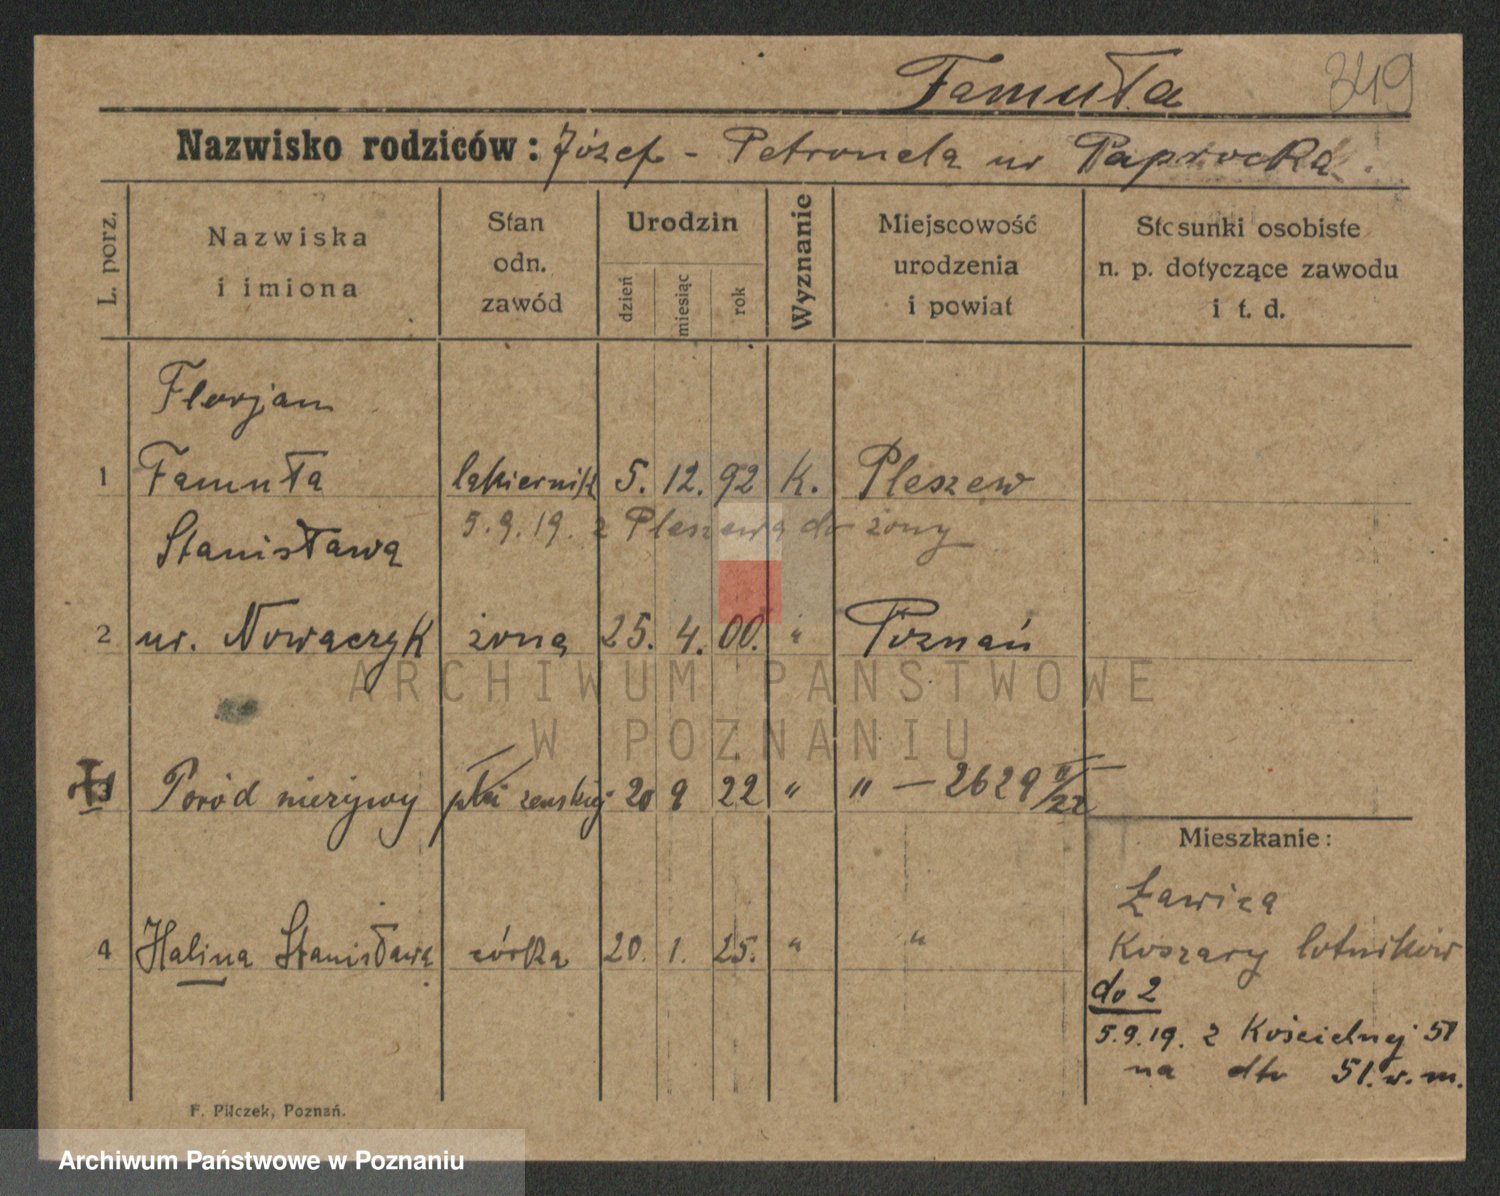 Famuła 349
Nazwisko rodziców: Józef - Petronela ur Paprocka.
L. porz.
Nazwiska
i imiona
Stan
odn.
zawód
Urodzin
dzień
miesiąc
rok
Wyznanie
Miejscowość
urodzenia
i powiat
Stosunki osobiste
n. p. dotyczące zawodu
i t. d.
Florjan
1 Famuła lakiernik 5. 12. 92 K. Pleszew
5.9.19. z Pleszewa do żony
Stanisława
2 ur. Nowaczyk żona 25. 4. 00. " Poznań
ARCHIWUM PAŃSTWOWE
W POZNANIU
3 Poród nieżywy płci żeńskiej 20 9 22 " " — 2629
Mieszkanie:
4 Halina Stanisława córka 20. 1. 25. " "
Ławica
Koszary lotników
do 2
5.9.19. z Kościelnej 51
na dto 51. w. m.
F. Pilczek, Poznań.
Archiwum Państwowe w Poznaniu